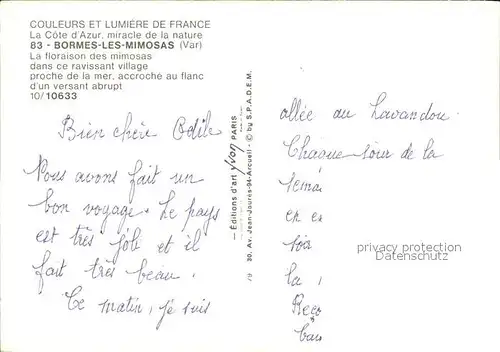 COULEURS ET LUMIÈRE DE FRANCE
La Côte d'Azur, miracle de la nature
83 - BORMES-LES-MIMOSAS (Var)
La floraison des mimosas
dans ce ravissant village
proche de la mer, accroché au flanc
d'un versant abrupt
10/10633
Bien chère Odile
Nous avons fait un
bon voyage. Le pays
est très joli et il
fait très beau.
Ce matin, je suis
— Éditions d'art Yvon PARIS
30. Av. Jean-Jaurès-94-Arcueil - © by S.P.A.D.E.M.
allée au Lavandou.
Chaque jour de la
semai
en e
soi
la
Reço
bai
privacy protection
Datenschutz